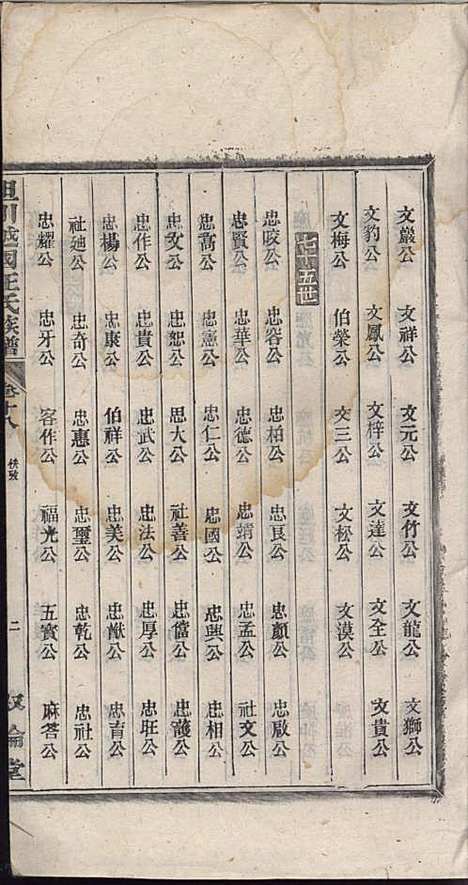 文嚴公 文祥公 文元公 文竹公 文龍公 文獅公
文豹公 文鳳公 文梓公 文達公 文全公 文貴公
文梅公 伯榮公 文三公 文松公 文漠公
七十五世
忠咬公 忠容公 忠柏公 忠良公 忠顏公 忠啟公
忠賢公 忠華公 忠德公 忠靖公 忠孟公 社文公
忠喬公 忠憲公 忠仁公 忠國公 忠興公 忠相公
忠文公 忠恕公 思大公 社善公 忠信公 忠護公
忠作公 忠貴公 忠武公 忠法公 忠厚公 忠旺公
忠楊公 忠康公 伯祥公 忠美公 忠猷公 忠育公
社廸公 忠奇公 忠惠公 忠璽公 忠乾公 忠社公
忠耀公 忠牙公 容作公 福光公 五賓公 麻答公
川 國汪氏族譜 卷十八 二 敘倫堂